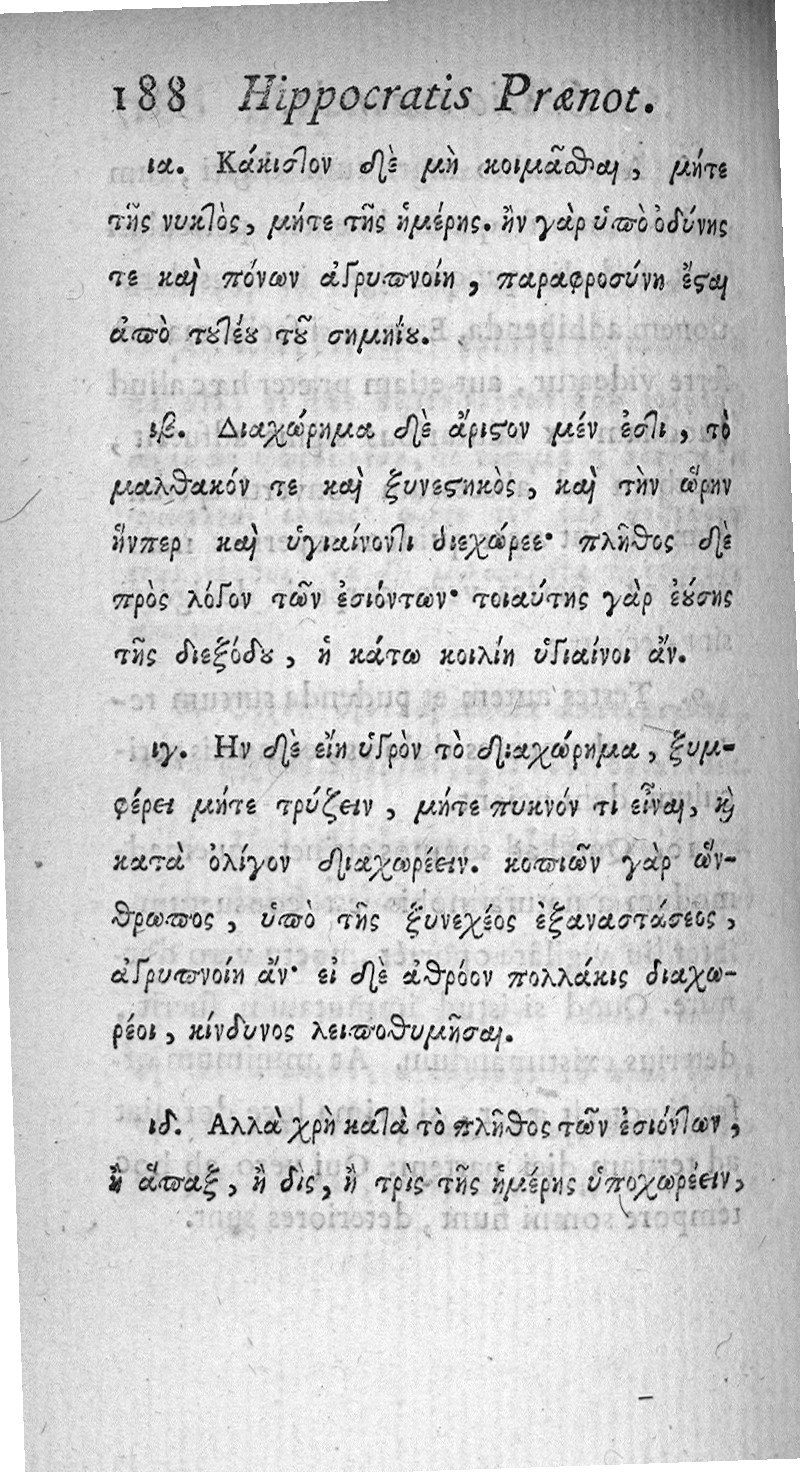 188 Hippocratis Prænot.
ια. Κάκιστον δὲ μὴ κοιμᾶσθαι, μήτε
τῆς νυκτὸς, μήτε τῆς ἡμέρης. ἢν γὰρ ὑπὸ ὀδύνης
τε καὶ πόνων ἀγρυπνοίη, παραφροσύνη ἔσται
ἀπὸ τουτέου τοῦ σημηΐου.
ιβ. Διαχώρημα δὲ ἄριστον μέν ἐστι, τὸ
μαλθακόν τε καὶ ξυνεστηκὸς, καὶ τὴν ὥρην
ἥνπερ καὶ ὑγιαίνοντι διεχώρεε· πλῆθος δὲ
πρὸς λόγον τῶν ἐσιόντων· τοιαύτης γὰρ ἐούσης
τῆς διεξόδου, ἡ κάτω κοιλίη ὑγιαίνοι ἄν.
ιγ. Ην δὲ εἴη ὑγρὸν τὸ διαχώρημα, ξυμ-
φέρει μήτε τρύζειν, μήτε πυκνόν τι εἶναι, καὶ
κατὰ ὀλίγον διαχωρέειν. κοπιῶν γὰρ ὥν-
θρωπος, ὑπὸ τῆς ξυνεχέος ἐξαναστάσεος,
ἀγρυπνοίη ἄν· εἰ δὲ ἀθρόον πολλάκις διαχω-
ρέοι, κίνδυνος λειποθυμῆσαι.
ιδ. Αλλὰ χρὴ κατὰ τὸ πλῆθος τῶν ἐσιόντων,
ἢ ἅπαξ, ἢ δὶς, ἢ τρὶς τῆς ἡμέρης ὑποχωρέειν,